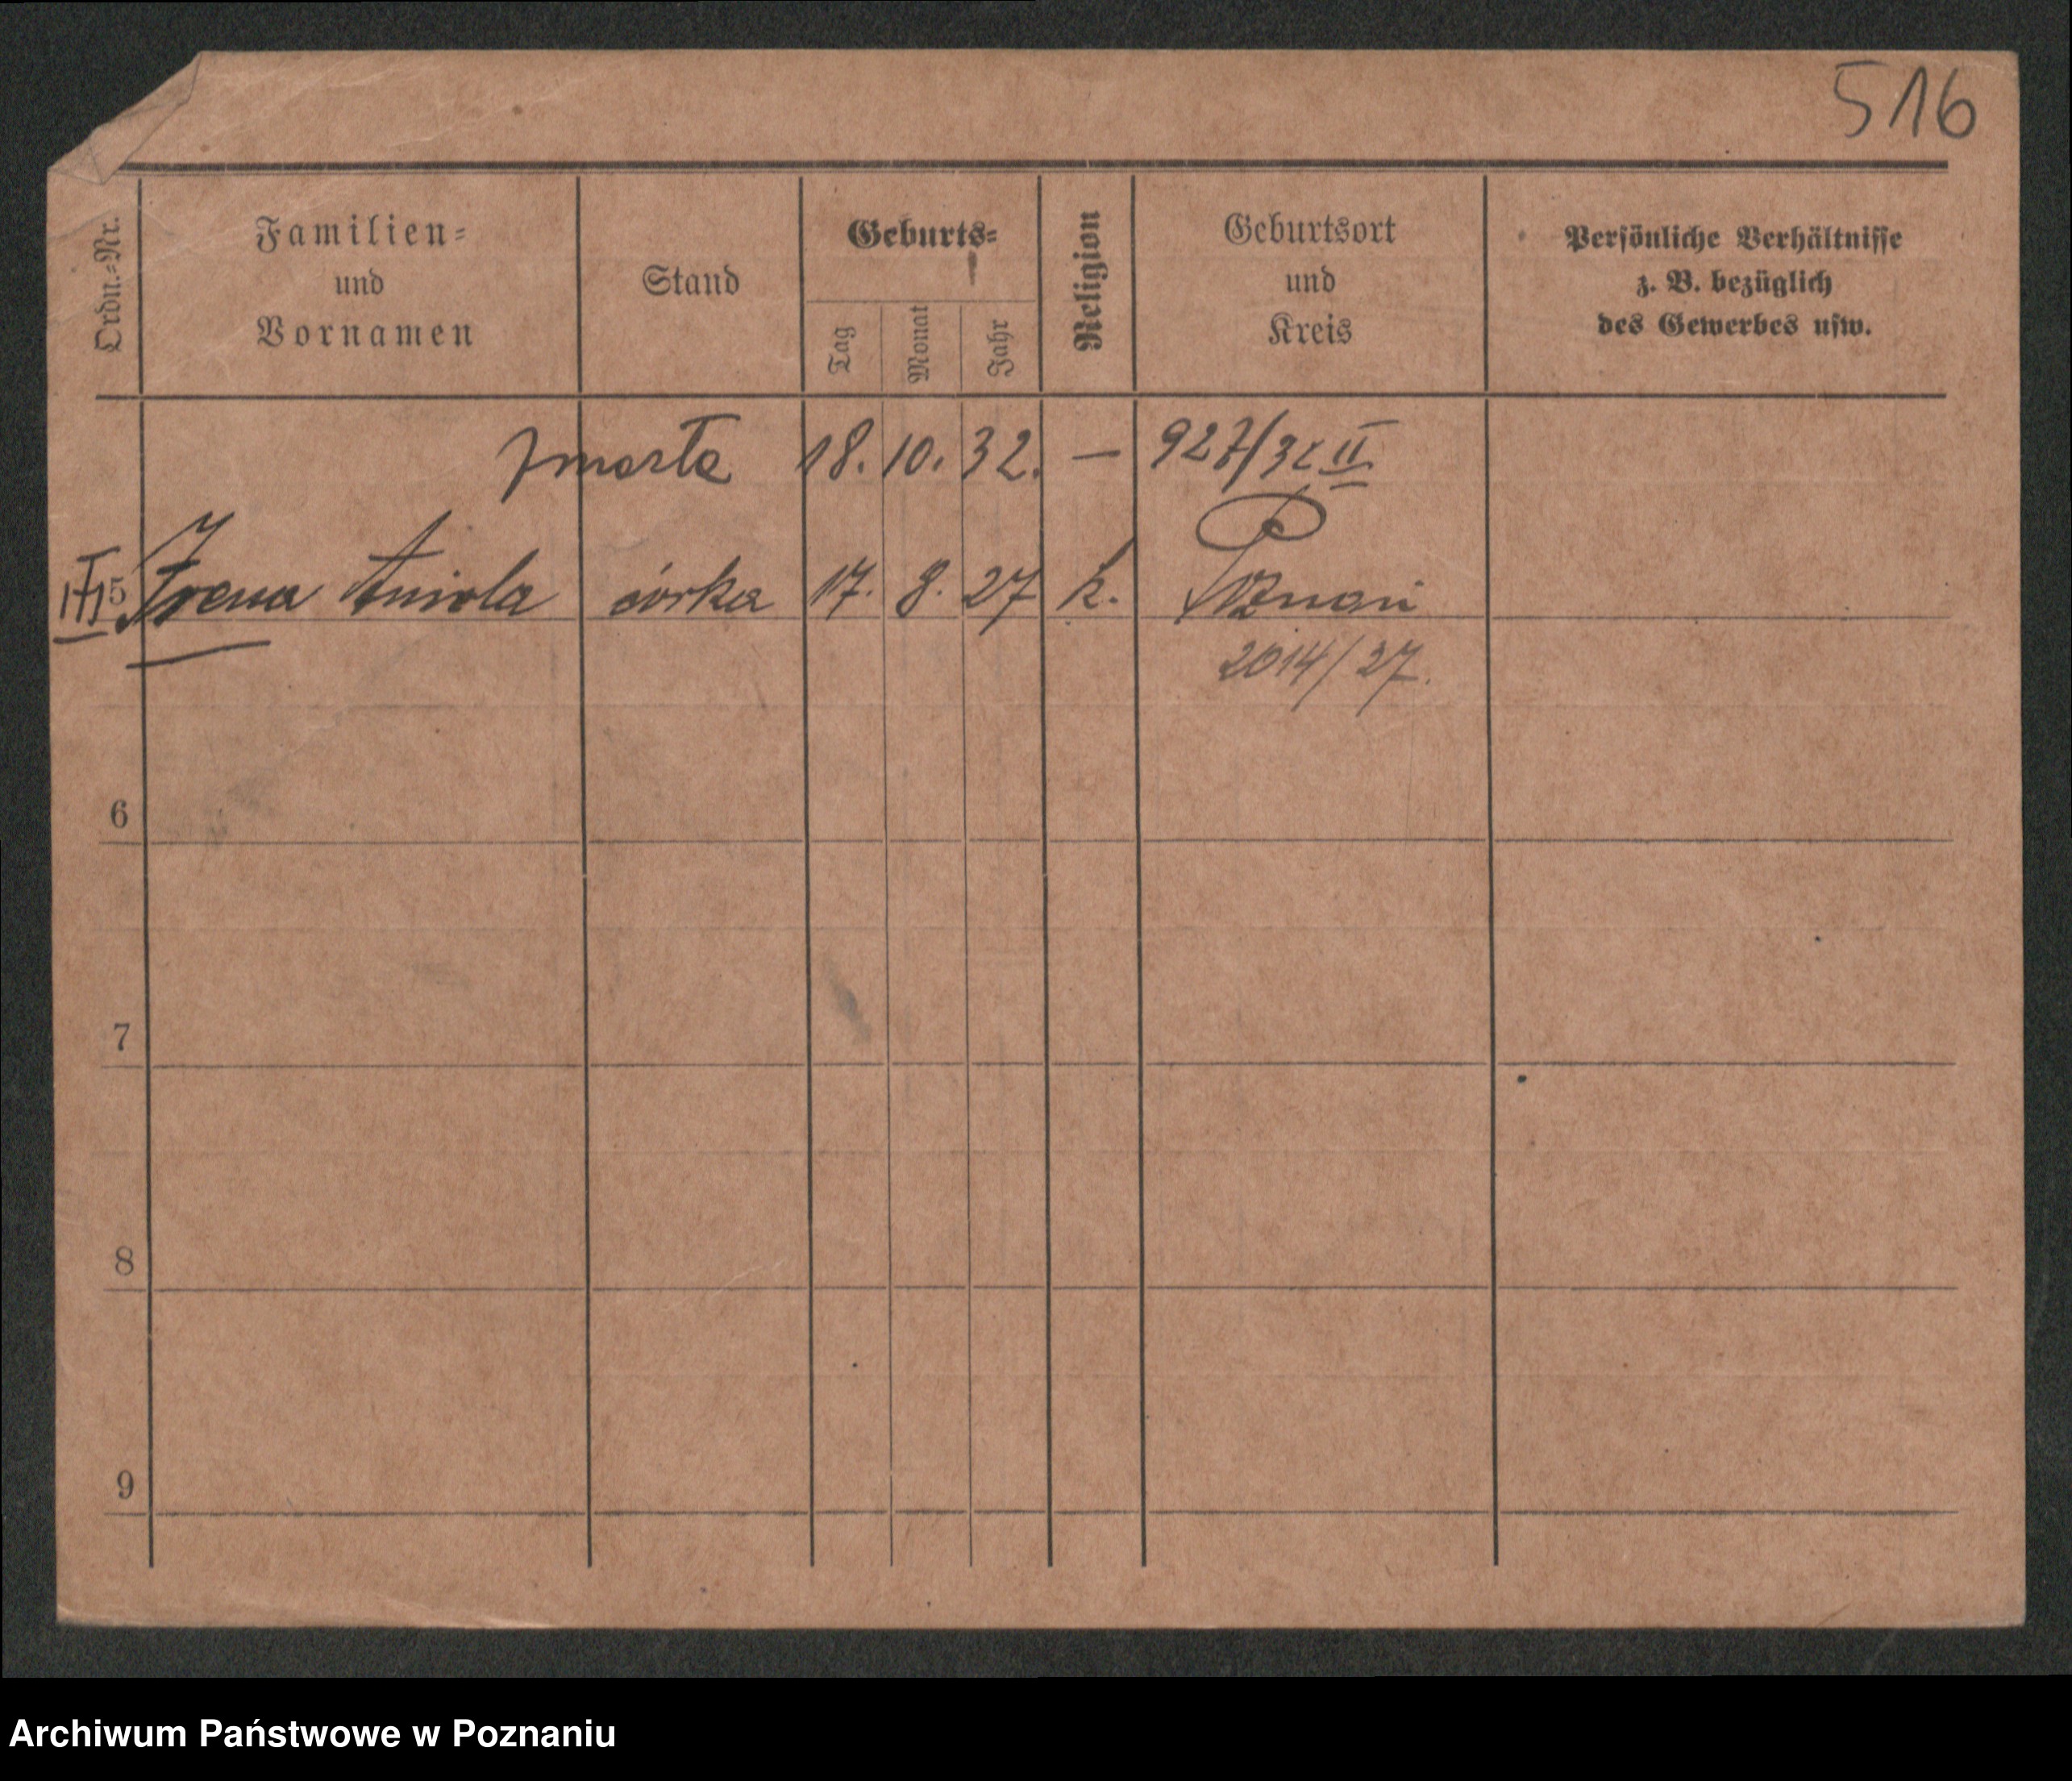 516
Ordn.-Nr.
Familien-
und
Vornamen
Stand
Geburts-
Tag
Monat
Jahr
Religion
Geburtsort
und
Kreis
Persönliche Verhältnisse
z. B. bezüglich
des Gewerbes usw.
zmarła 18. 10. 32. — 927/32 II
5 Irena Aniola córka 17. 8. 27 k. Poznań
2014/27.
6
7
8
9
Archiwum Państwowe w Poznaniu